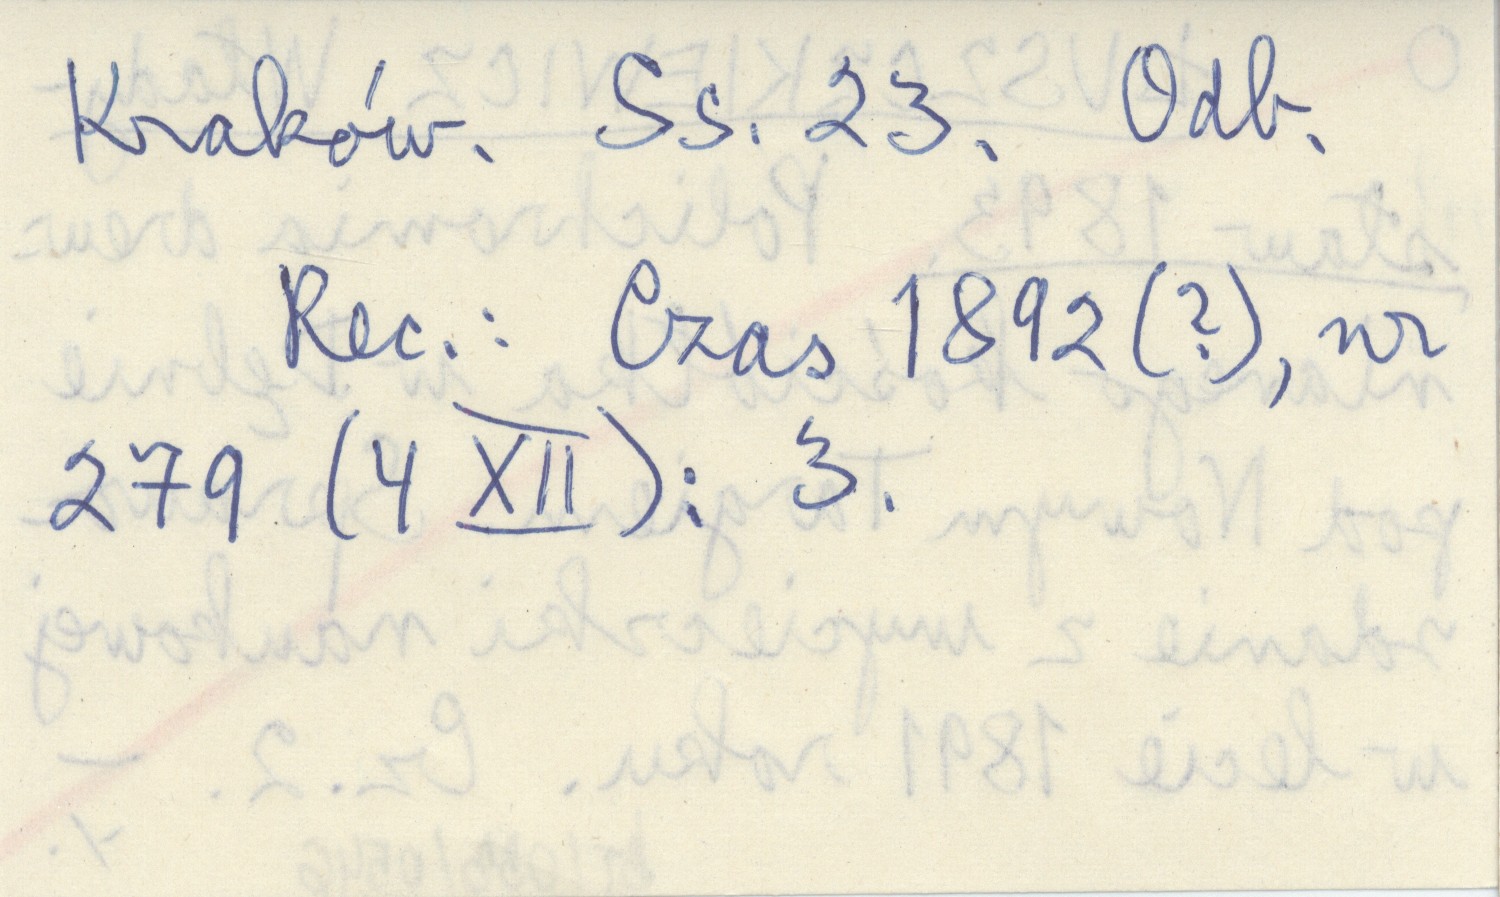 Kraków. Ss. 23. Odb.
Rec.: Czas 1892 (?), nr
279 (4 XII): 3.